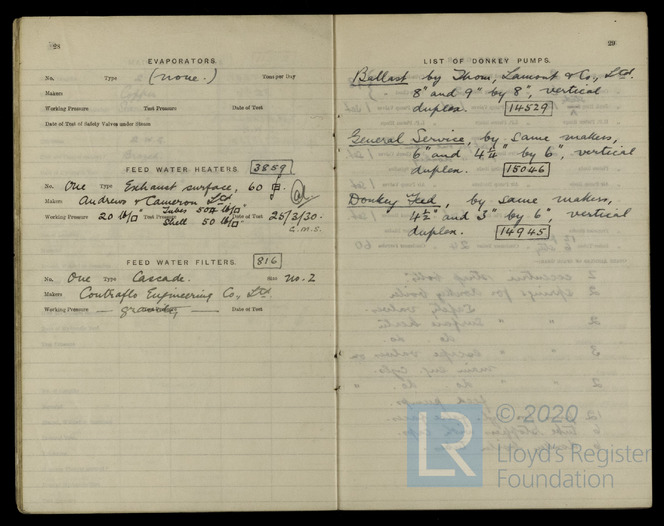 28
EVAPORATORS.
No. Type (none.) Tons per Day
Makers
Working Pressure Test Pressure Date of Test
Date of Test of Safety Valves under Steam
FEED WATER HEATERS. 3859
No. One Type Exhaust surface, 60
Makers Andrews & Cameron Ltd
Working Pressure 20 lb/□" Test Pressure Tubes 50 lb/□" Date of Test 25/3/30.
Shell 50 lb/□"
FEED WATER FILTERS. 816
No. One Type Cascade. Size No. 2
Makers Contraflo Engineering Co., Ltd.
Working Pressure — gravity — Date of Test
29
LIST OF DONKEY PUMPS.
Ballast by Thom, Lamont & Co., Ltd.
8" and 9" by 8", vertical
duplex. 14529
General Service, by same makers,
6" and 4¼" by 6", vertical
duplex. 15046
Donkey Feed, by same makers,
4½" and 3" by 6", vertical
duplex. 14945
LR © 2020
Lloyd's Register
Foundation